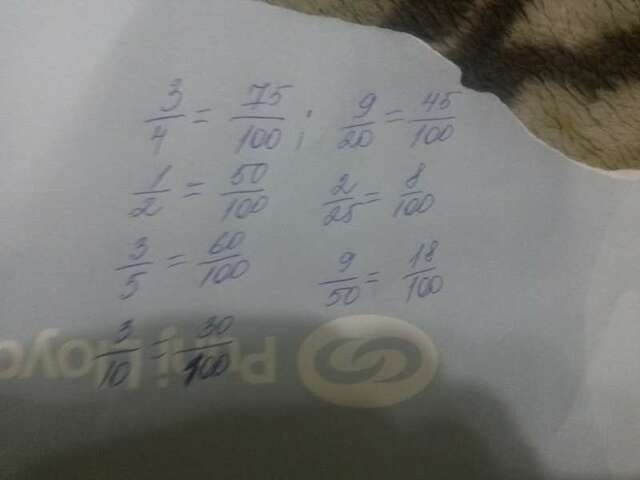 3/4 = 75/100 ; 9/20 = 45/100
1/2 = 50/100 2/25 = 8/100
3/5 = 60/100 9/50 = 18/100
3/10 = 30/100